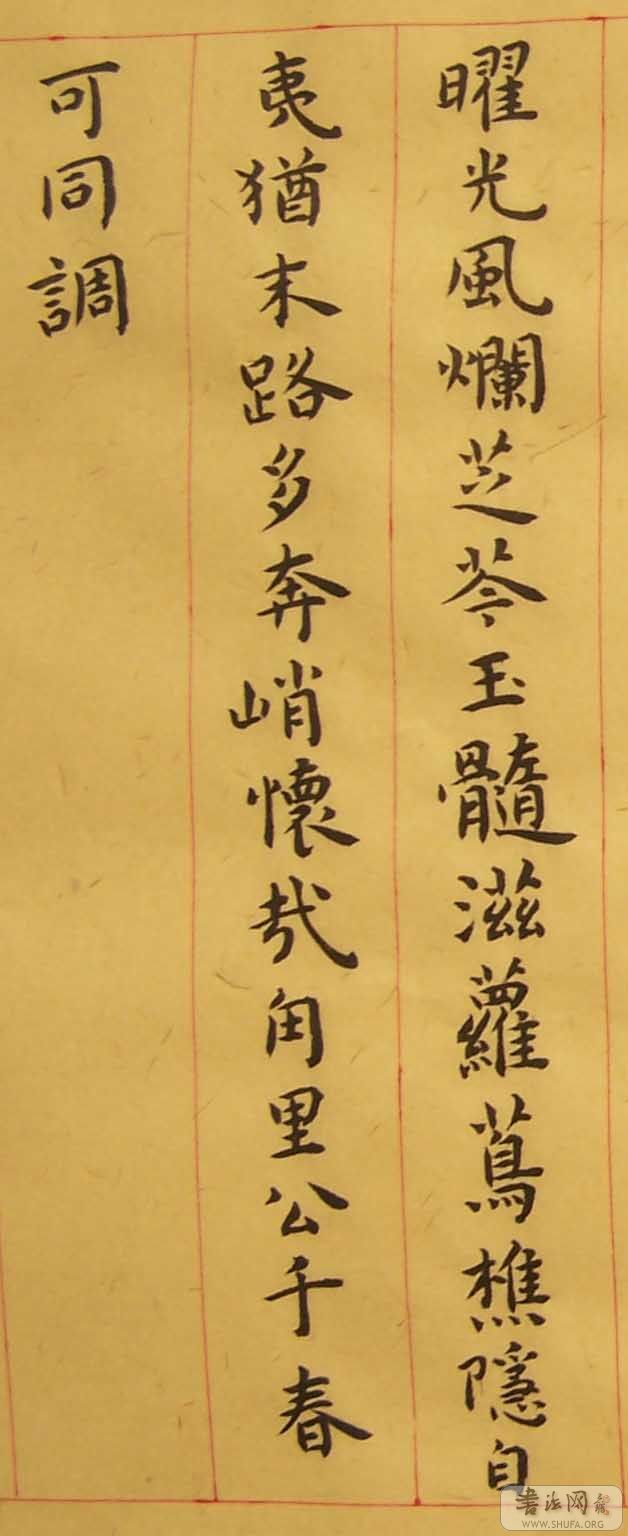 曜光風爛芝苓玉髓滋蘿蔦樵隱自
夷猶末路多奔峭懷哉甪里公千春
可同調
書法网
WWW.SHUFA.ORG